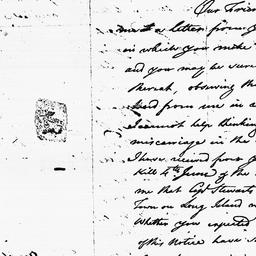 Our Frien
me it a letter from
in which you note
and you may be sure
thereat, observing th
from me in a
I cannot help thinking
miscarriage in the
I have received from
Kill 4th June of the
me that Capt Stewart
Town on Long Island
Whether you expected
of this Notice have